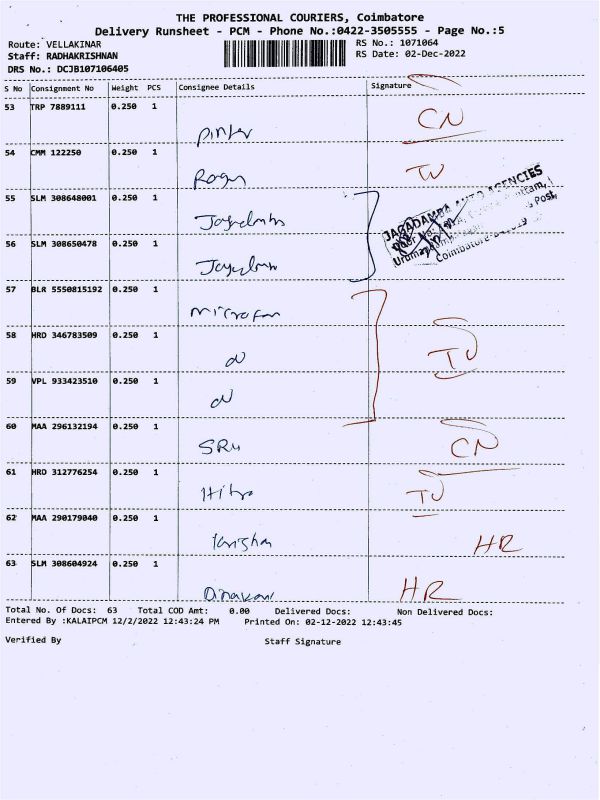 THE PROFESSIONAL COURIERS, Coimbatore
Delivery Runsheet - PCM - Phone No.:0422-3505555 - Page No.:5
Route: VELLAKINAR RS No.: 1071064
Staff: RADHAKRISHNAN RS Date: 02-Dec-2022
DRS No.: DCJB107106405
S No Consignment No Weight PCS Consignee Details Signature
53 TRP 7889111 0.250 1
CN
54 CMM 122250 0.250 1
TV
55 SLM 308648001 0.250 1
JAGADAMBA AUTO AGENCIES
56 SLM 308650478 0.250 1
57 BLR 5550815192 0.250 1
58 HRD 346783509 0.250 1
TV
59 VPL 933423510 0.250 1
60 MAA 296132194 0.250 1
CN
61 HRD 312776254 0.250 1
TV
62 MAA 290179040 0.250 1
HR
63 SLM 308604924 0.250 1
HR
Total No. Of Docs: 63 Total COD Amt: 0.00 Delivered Docs: Non Delivered Docs:
Entered By :KALAIPCM 12/2/2022 12:43:24 PM Printed On: 02-12-2022 12:43:45
Verified By Staff Signature